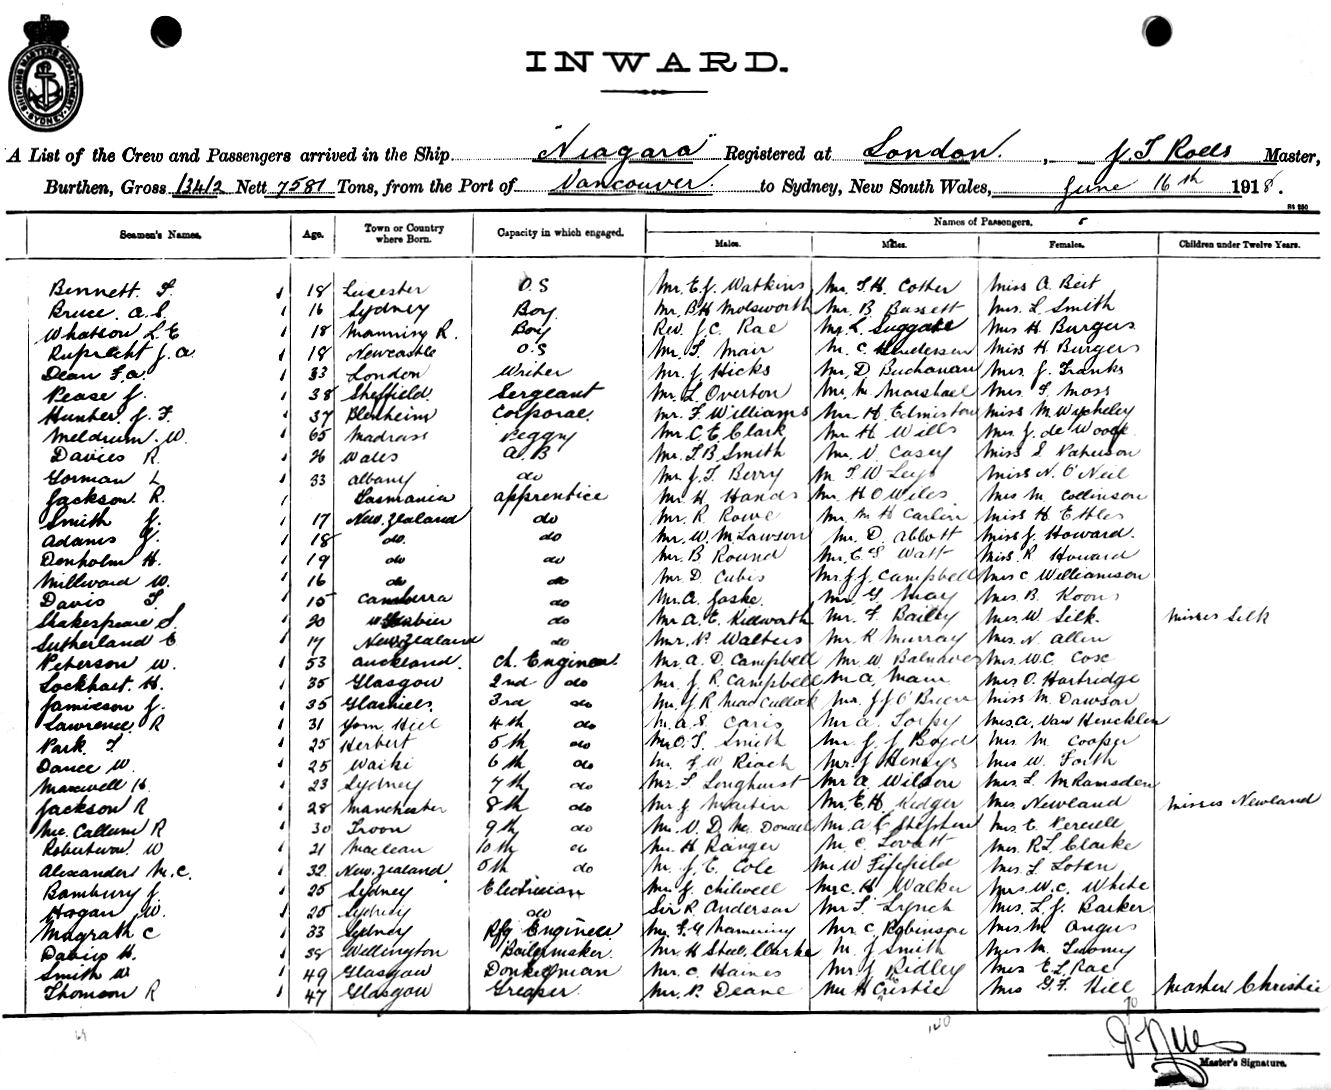 SHIPPING MASTERS DEPARTMENT SYDNEY
INWARD.
A List of the Crew and Passengers arrived in the Ship "Niagara" Registered at London. , J. T. Rolls Master,
Burthen, Gross 13412 Nett 7581 Tons, from the Port of Vancouver. to Sydney, New South Wales, June 16th 1918.
Seamen's Names. Age. Town or Country where Born. Capacity in which engaged. Names of Passengers. 5
Males. Males. Females. Children under Twelve Years.
Bennett. 1 18 Leicester O.S Mr. E. J. Watkins Mr. Cother Miss A. Beit
Bruce. A. 1 16 Sydney Boy Mr. B H Molsworth Mr. B. Bassett Mrs. L Smith
Whatson L. E 1 18 Manning R. Boy Rev. J. C. Rae Mr. L. Suggate Mrs H. Burgers
Ruprecht J. A. 1 18 Newcastle O.S Mr. Mair Mr. C. Henderson Miss H. Burgers
Dean F. A. 1 33 London Writer Mr. J. Hicks Mr. D Buchanan Mrs. J. Franks
Pease J. 1 38 Sheffield. Sergeant Mr. L. Overton Mr. M. Marshall Mrs. Moss
Hunter J. F. 1 37 Blenheim Corporal. Mr. F. Williams Mr H. Edmiston Miss M.
Meldrum. W. 1 65 Madrass Peggy Mr. C. E. Clark Mr. H. Wills Mrs. J. de
Davies R. 1 26 Wales A. B Mr. T. B. Smith Mr. V. Casey Miss Paterson
Gorman L 1 33 Albany do Mr. J. T. Berry M. T. W. Miss N. O'Neil
Jackson. R. 1 Tasmania apprentice Mr. H. Hands Mr. H O Wiles. Mrs M. Collinson
Smith J. 1 17 New Zealand do Mr. R. Rowe Mr. M H Carlin Miss H.
Adams 1 18 do. do Mr. W. McLawson Mr. D. Abbott Miss J. Howard.
Denholm H. 1 19 do do Mr. B Round Mr. E. Watt Miss. R Howard
Millward W. 1 16 do do Mr. D. Cubis Mr. J. J. Campbell Mrs C. Williamson
Davis 1 15 Canberra do Mr. A. Jaske. Mr. G. May Mrs. B. Koons
Shakespeare S. 1 20 do Mr A. E. Kidworth Mr. F. Bailey Mrs. W. Silk. Misses Silk
Sutherland E 1 17 New Zealand do Mr. P. Walters Mr. K Murray Mrs. N. Allen
Peterson W. 1 53 Auckland. Ch. Engineer. Mr. A. D. Campbell Mr. W. Balnaves Mrs. W. C. Cose
Lockhart. H. 1 35 Glasgow 2nd do Mr. J. R. Campbell M A. Main Mrs O. Hartridge
Jamieson J. 1 35 3rd do M. J. R. MacCulloch Mr. J J O'Brien Miss M. Dawson
Lawrence. R 1 31 4th do M. A. S. Caris Mr. A. Torpy Mrs. A. Van
Park 1 25 Herbert 5th do Mr. O. Smith Mr. J. J Boyd Mrs. M. Cooper
Dance W. 1 25 Waiki 6th do Mr. F. W. Reach Mr J Mrs W. Forth
Maxwell H. 1 23 Sydney 7th do Mr. Longhurst Mr A. Wilson Mrs. L. McRamsden
Jackson R 1 28 Manchester 8th do Mr. J Martin Mr. E. H. Kedger Mrs. Newland Misses Newland
Mc. Callum R 1 30 Troon 9th do Mr. V. D. McDonald Mr. A. E Shepherd Mrs. E.
Robertson. W 1 21 Maclean 10th do Mr. H Ranger M. C. Lovatt Mrs. R L. Clarke
Alexander M. C. 1 32 New Zealand 5th do M. J. E. Cole Mr W Fifefild Mrs. L. Loten
Bambury J. 1 25 Sydney Electrician Mr. J. Chilwell Mr. C. H. Walker Mrs. W. C. White
Hogan W. 1 25 Sydney do Sir R. Anderson Mr Lynch Mrs. L. J. Barker.
Magrath C 1 33 Sydney Rfg Engineer Mr. F. G Manning Mr C. Robinson Mrs. M. Angus
Davis H. 1 Wellington Boilermaker. Mr. H Steel Clarke M. J Smith Mrs M.
Smith W 1 49 Glasgow Donkeyman Mr. C. Haines Mr. J Ridley Mrs E. L. Rae
Thomson R 1 47 Glasgow Greaser. Mr. P. Deane Mr H Cristie Mrs G. F. Hill Master Christie
70
140
Master's Signature.